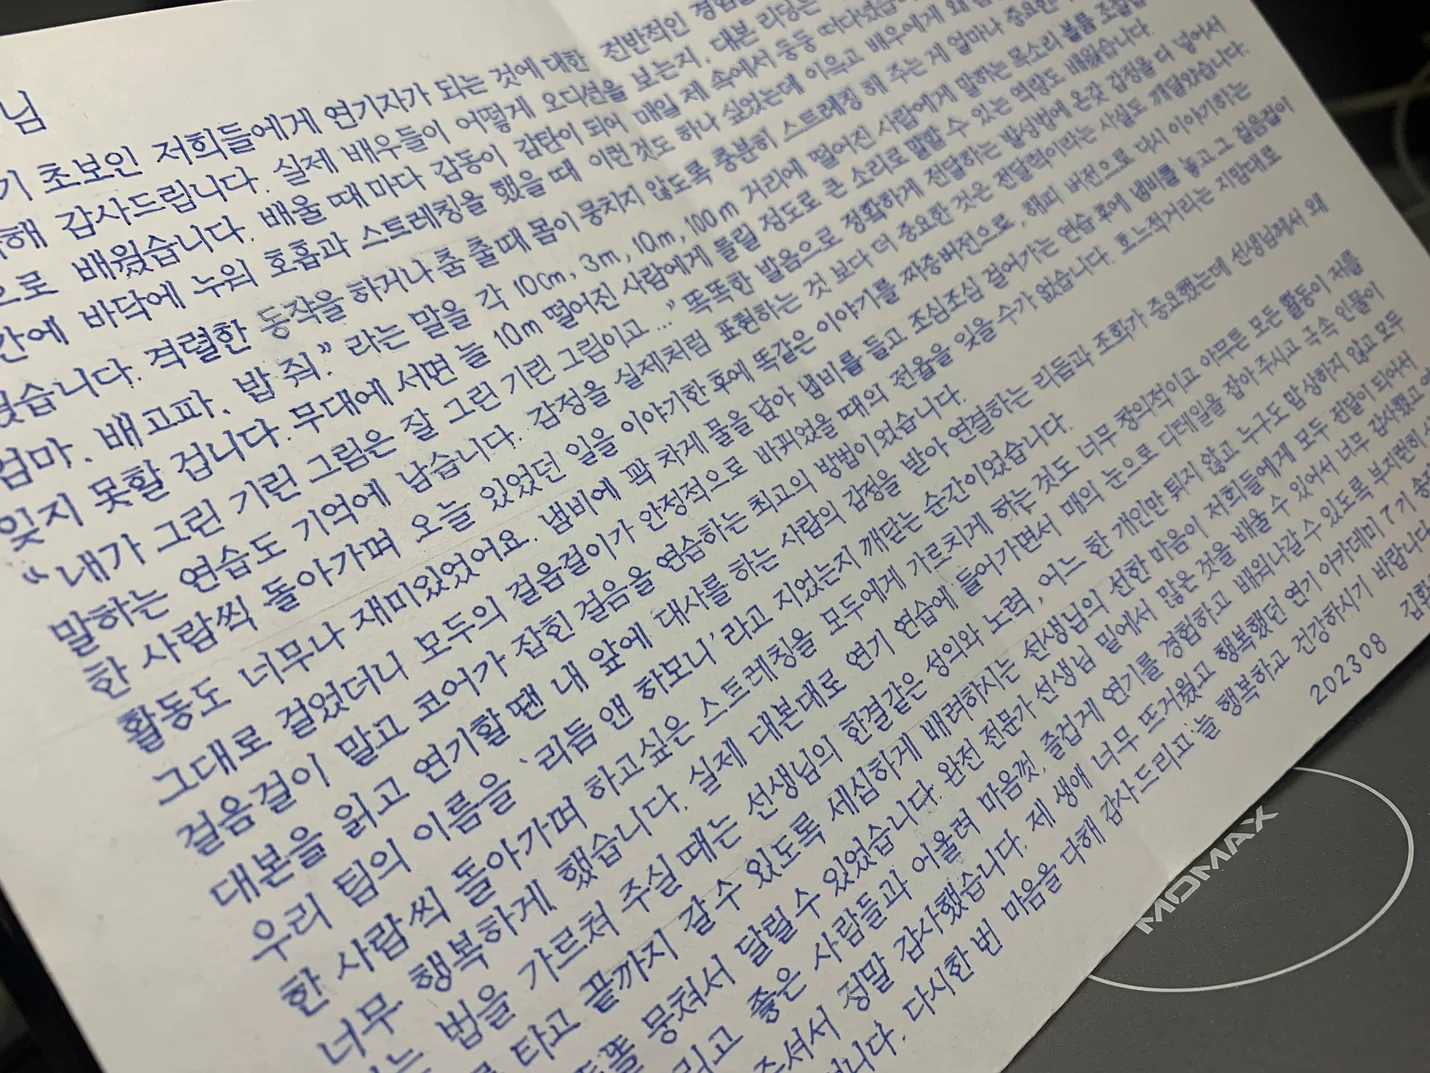 님
기 초보인 저희들에게 연기자가 되는 것에 대한 전반적인 경험을
해 감사드립니다. 실제 배우들이 어떻게 오디션을 보는지, 대본 리딩은
으로 배웠습니다. 배울 때마다 감동이 감탄이 되어 매일 제 속에서 둥둥 떠다녔습니다
간에 바닥에 누워 호흡과 스트레칭을 했을 때 이런 것도 하나 싶었는데 이윽고 배우에게 왜
었습니다. 격렬한 동작을 하거나 춤 출 때 몸이 뭉치지 않도록 충분히 스트레칭 해 주는 게 얼마나 중요한
엄마. 배고파. 밥 줘." 라는 말을 각 10cm, 3m, 10m, 100m 거리에 떨어진 사람에게 말하는 목소리 볼륨 조절법
잊지 못할 겁니다. 무대에 서면 늘 10m 떨어진 사람에게 들릴 정도로 큰 소리로 말할 수 있는 역량도 배웠습니다.
"내가 그린 기린 그림은 잘 그린 기린 그림이고..." 똑똑한 발음으로 정확하게 전달하는 발성법에 온갖 감정을 다 넣어서
말하는 연습도 기억에 남습니다. 감정을 실제처럼 표현하는 것 보다 더 중요한 것은 전달력이라는 사실도 깨달았습니다.
한 사람씩 돌아가며 오늘 있었던 일을 이야기한 후에 똑같은 이야기를 짜증버전으로, 해피 버전으로 다시 이야기하는
활동도 너무나 재미있었어요. 냄비에 꽉 차게 물을 담아 냄비를 들고 조심조심 걸어가는 연습 후에 냄비를 놓고 그 걸음걸이
그대로 걸었더니 모두의 걸음걸이가 안정적으로 바뀌었을 때의 전율을 잊을 수가 없습니다. 흐느적거리는 지맘대로
걸음걸이 말고 코어가 잡힌 걸음을 연습하는 최고의 방법이었습니다.
대본을 읽고 연기할 땐 내 앞에 대사를 하는 사람의 감정을 받아 연결하는 리듬과 조화가 중요했는데 선생님께서 왜
우리 팀의 이름을 '리듬 앤 하모니'라고 지었는지 깨닫는 순간이었습니다.
한 사람씩 돌아가며 하고싶은 스트레칭을 모두에게 가르치게 하는 것도 너무 창의적이고 아무튼 모든 활동이 저를
너무 행복하게 했습니다. 실제 대본대로 연기 연습에 들어가면서 매의 눈으로 디테일을 잡아 주시고 극속 인물이
는 법을 가르쳐 주실 때는 선생님의 한결같은 성의와 노력, 어느 한 개인만 튀지 않고 누구도 맘상하지 않고 모두
타고 끝까지 갈 수 있도록 세심하게 배려하시는 선생님의 선한 마음이 저희들에게 모두 전달이 되어서
똘똘 뭉쳐서 달릴 수 있었습니다. 완전 전문가 선생님 밑에서 많은 것을 배울 수 있어서 너무 감사했고
리고 좋은 사람들과 어울려 마음껏, 즐겁게 연기를 경험하고 배워나갈 수 있도록 부지런히
주셔서 정말 감사했습니다. 제 생애 너무 뜨거웠고 행복했던 연기 아카데미 7기
니다. 다시한번 마음을 다해 감사드리고 늘 행복하고 건강하시기 바랍니다
202308
MOMAX